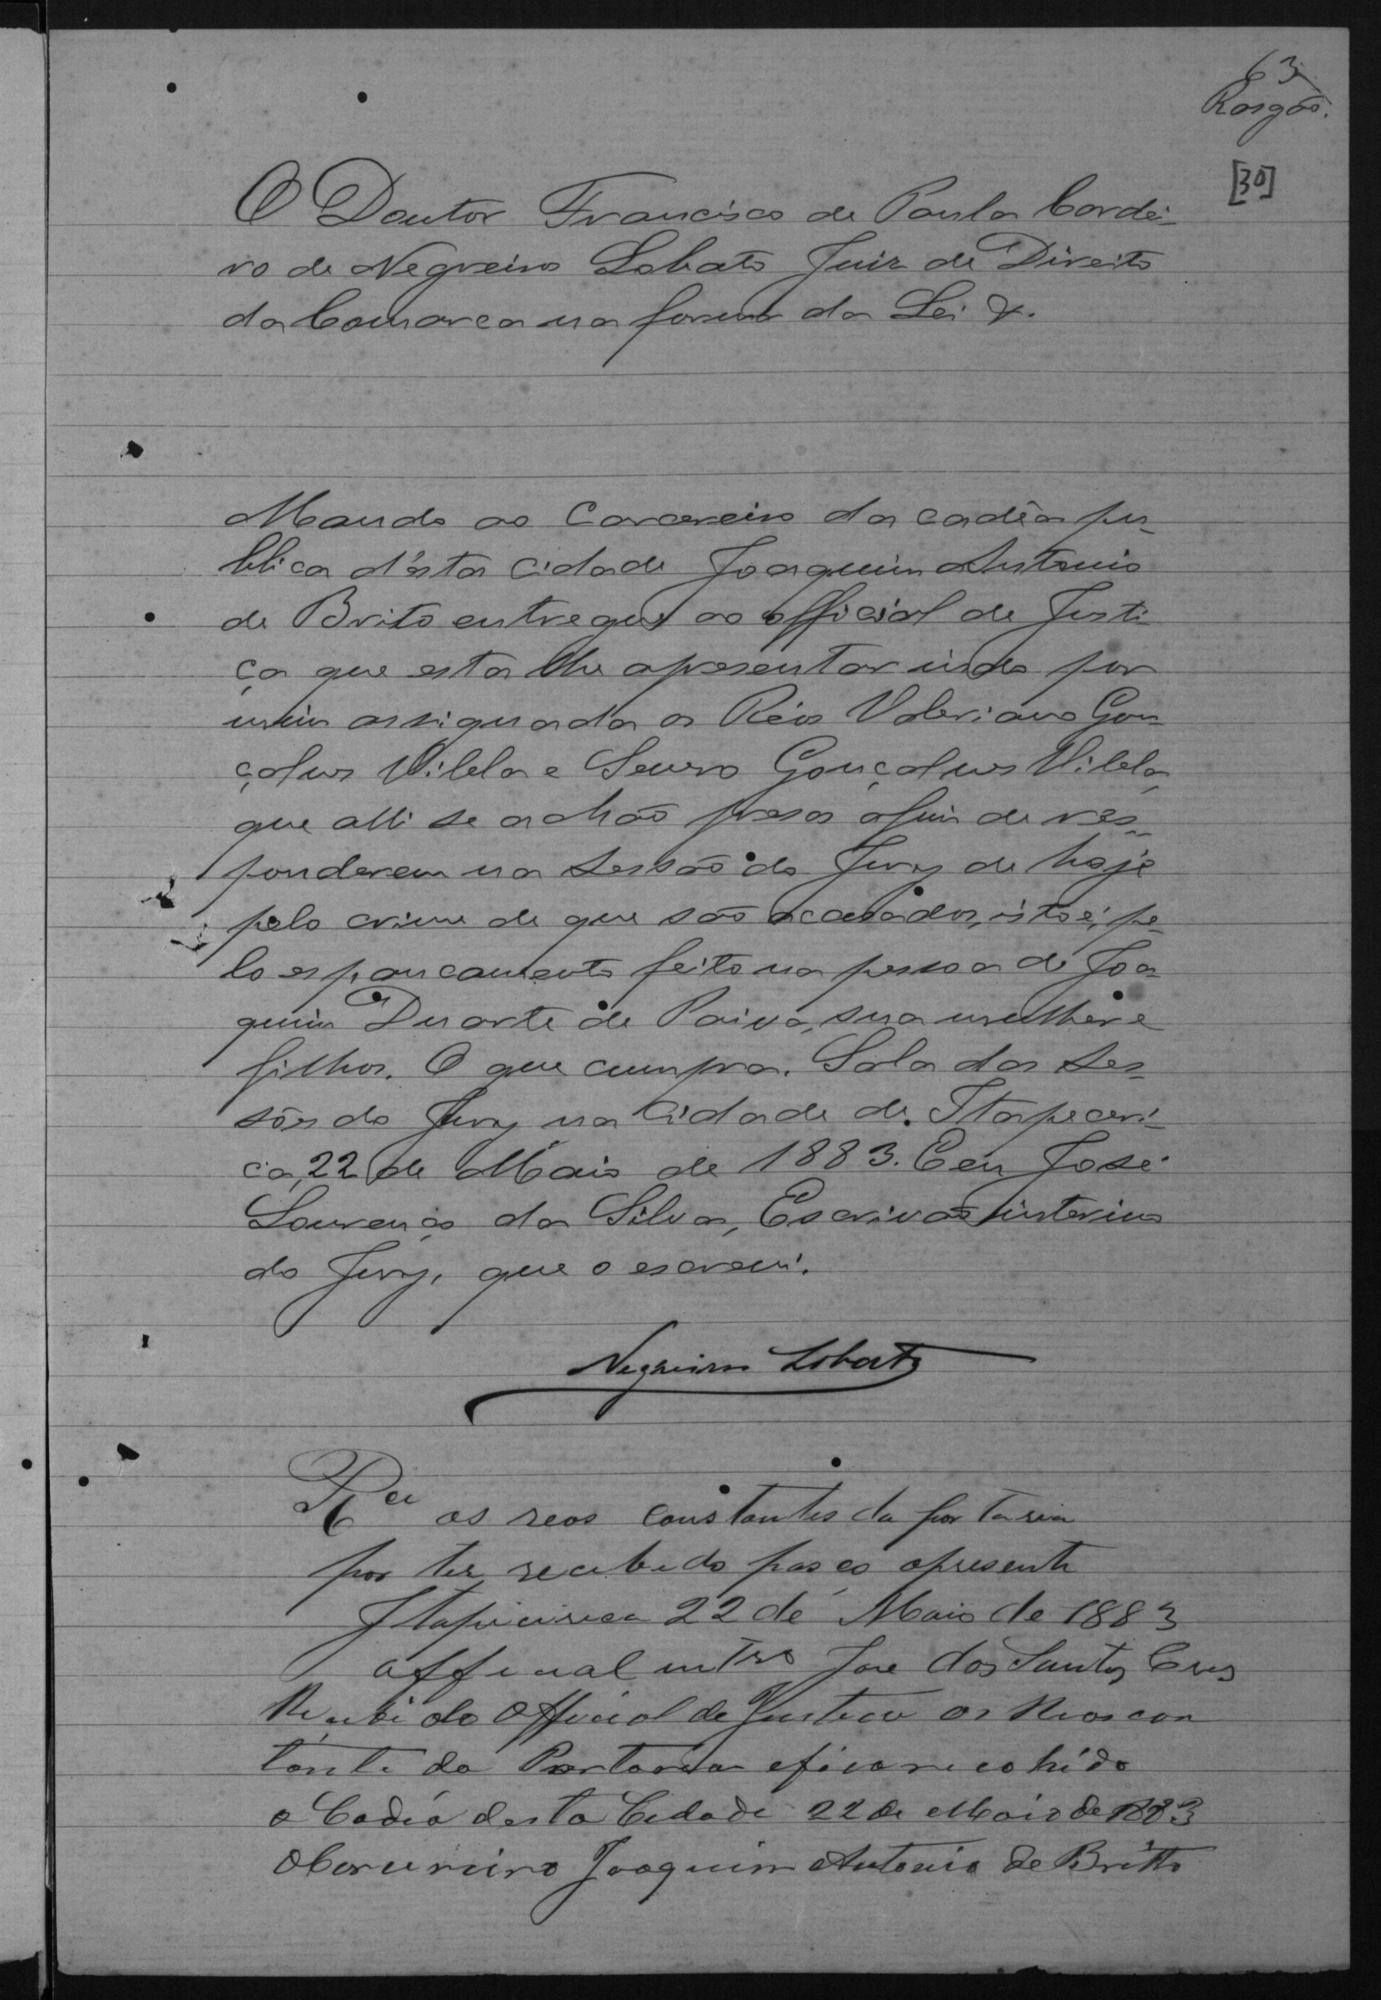 63
Rasgão.
[30]
O Doutor Francisco de Paula Cordei-
ro de Negreiros Lobato Juiz de Direito
da Comarca na forma da Lei &.
Mando ao Carcereiro da cadêa pu-
blica d'ésta cidade Joaquim Antonio
de Brito entregue ao official de Justi-
ça que esta lhe apresentar indo por
mim assignada os Réos Valeriano Gon-
çalves Vilela e Severo Gonçalves Vilela,
que alli se achão presos afim de res-
ponderem na Sessão do Jury de hoje
pelo crime de que são accusados, isto é, pe-
lo espancamento feito na pessoa de Joa-
quim Duarte de Paiva, sua mulher e
filhos. O que cumpra. Sala das Ses-
sões do Jury na Cidade de Itapeceri-
ca, 22 de Maio de 1883. Eeu José
Lourenço da Silva, Escrivão interino
do Jury, que o escrevi.
Negreiros Lobato
Rce os reos constantes da portaria
por ter recebido paso apresente
Itapicirica 22 de Maio de 1883
official intro Jose dos Santos Crus
Recebi do Official de Justica os Reos con
tante da Portaria e fica recohido
a Cadia desta Cidade 22 de Maio de 1883
O Carcereiro Joaquim Antonio de Britto